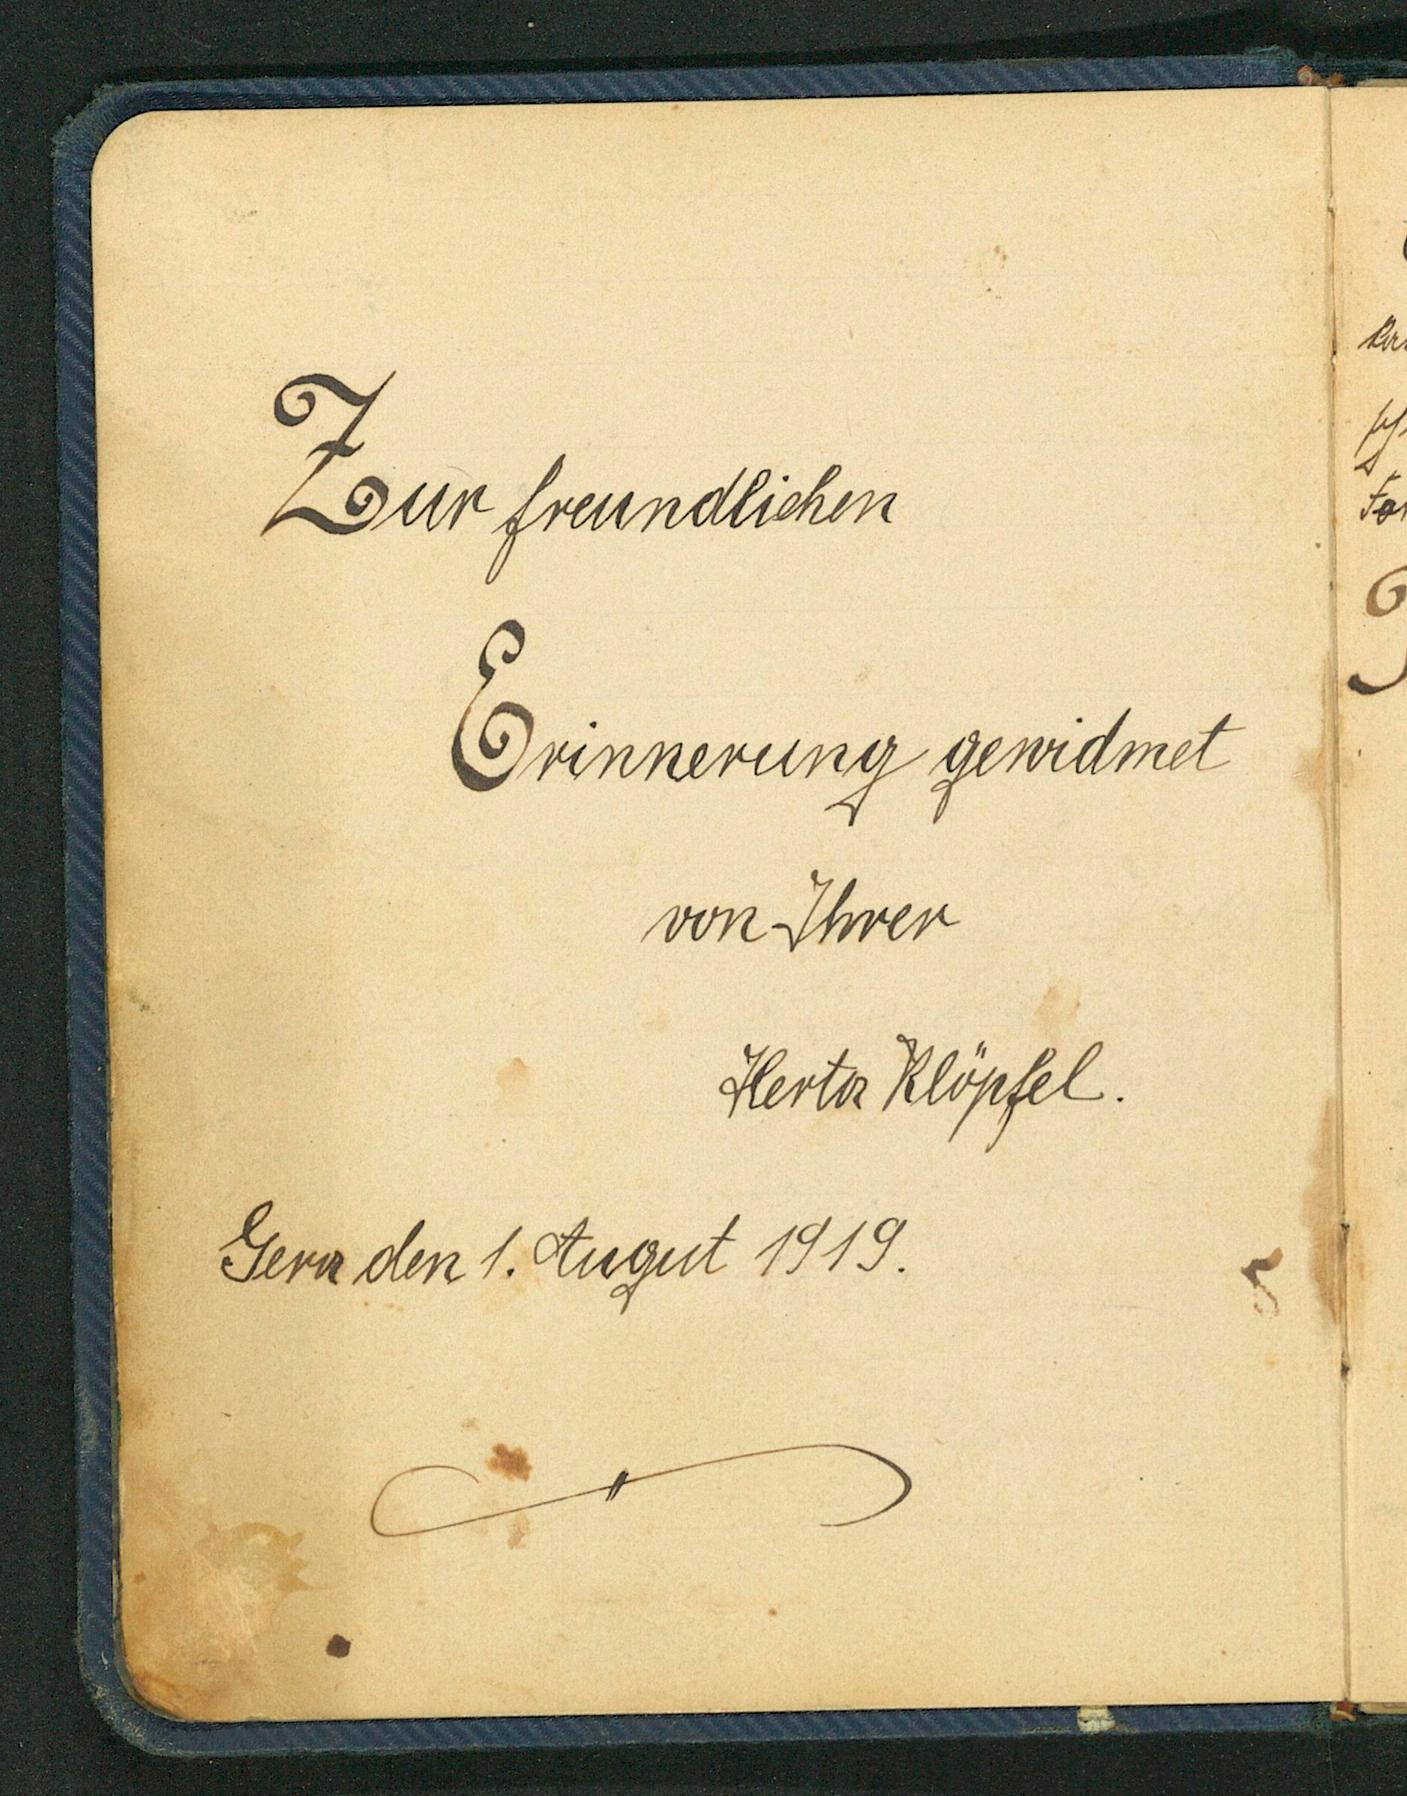 Zur freundlichen
Erinnerung gewidmet
von Ihrer
Herta Klöpfel.
Gera den 1. Augut 1919.